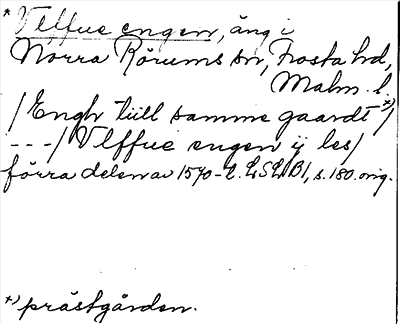 * Ulffue engen, äng i
Norra Rörums sn, Frosta hd,
Malm. l.
/Engh tiill samme gaardt *)/
---/ Vlffue engen ij les/
förra delen av 1570-t. LSLB1, s. 180. orig.
*) prästgården.